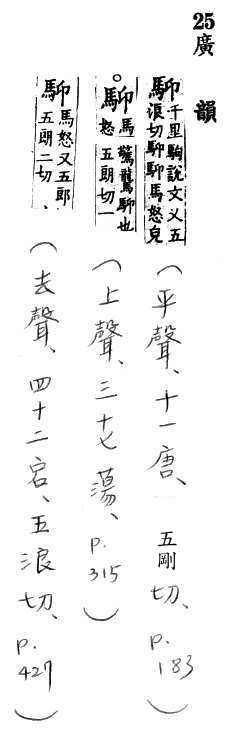 25廣韻
䭹千里駒說文又五浪切䭹䭹馬怒皃
(平聲、十一唐、五剛切、p.183)
○䭹馬驚䭹也
怒五朗切一
(上聲、三十七蕩、p.315)
䭹馬怒又五郎五朗二切、
(去聲、四十二宕、五浪切、p.427)